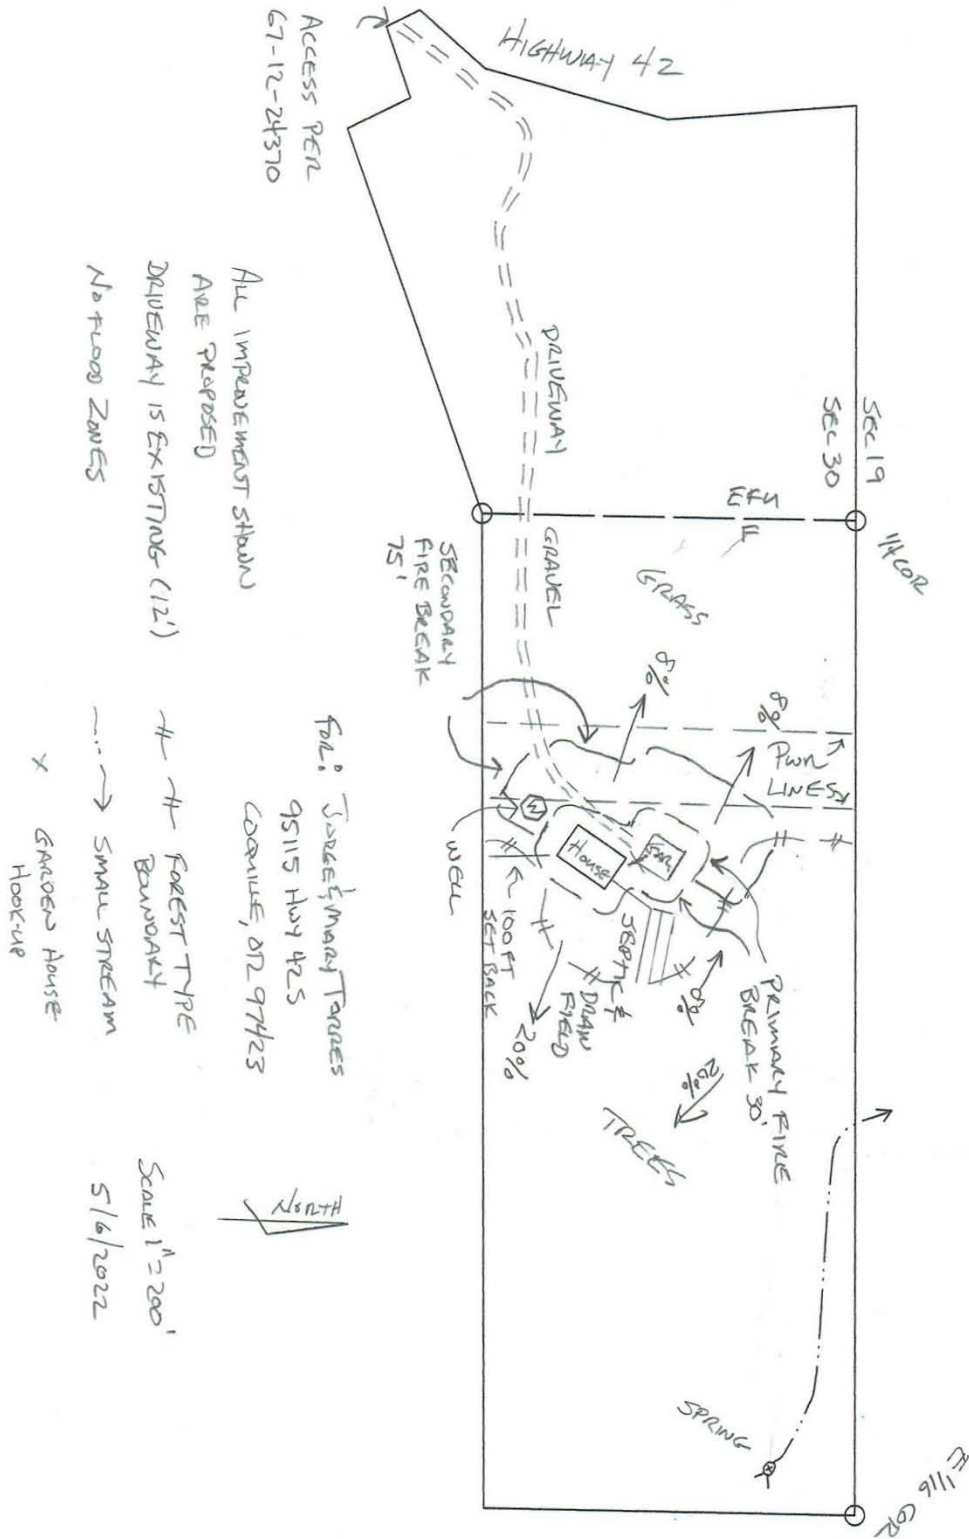 HIGHWAY 42
ACCESS PER
67-12-24370
SEC 19
SEC 30
1/4 COR
E 1/16 COR
DRIVEWAY
GRAVEL
EFU
F
GRASS
8%
8%
PWR
LINES
SECONDARY
FIRE BREAK
75'
W
WELL
HOUSE
GAR
100 FT
SET BACK
SEPTIC &
DRAIN
FIELD
20%
8%
20%
PRIMARY FIRE
BREAK 30'
TREES
SPRING
ALL IMPROVEMENT SHOWN
ARE PROPOSED
DRIVEWAY IS EXISTING (12')
NO FLOOD ZONES
FOR: JORGE & MARY TORRES
95115 HWY 42S
COQUILLE, OR 97423
FOREST TYPE
BOUNDARY
SMALL STREAM
X GARDEN HOUSE
HOOK-UP
NORTH
SCALE 1"=200'
5/6/2022